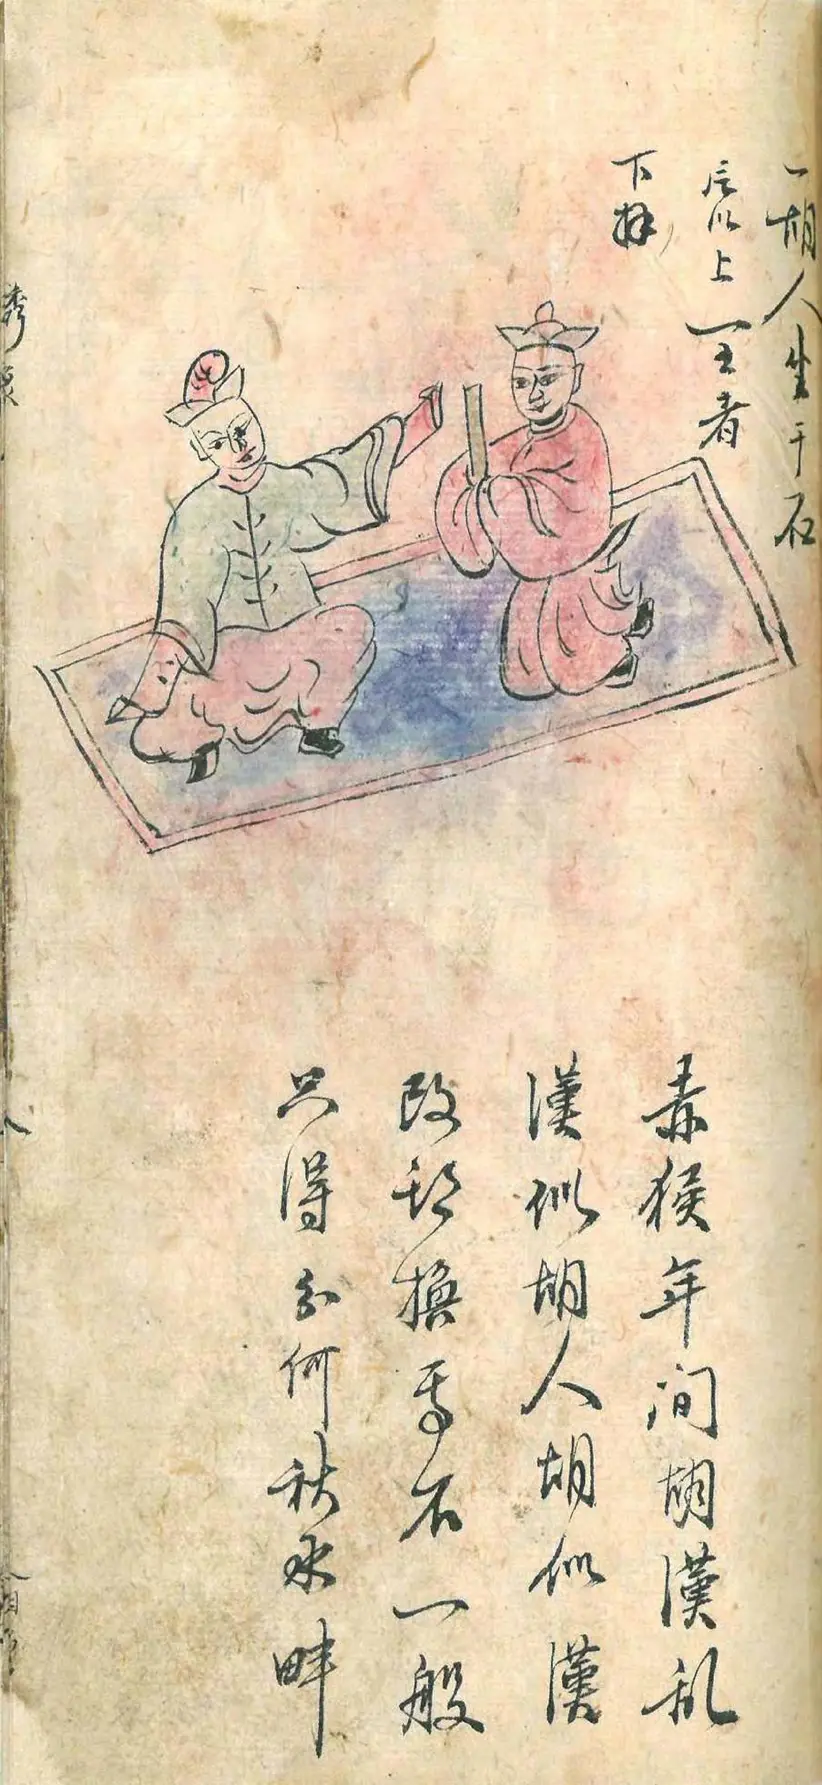 一胡人坐于石
以上一王者
下拜
赤猴年间胡漢乱
漢似胡人胡似漢
改換不一般
只得何秋水畔